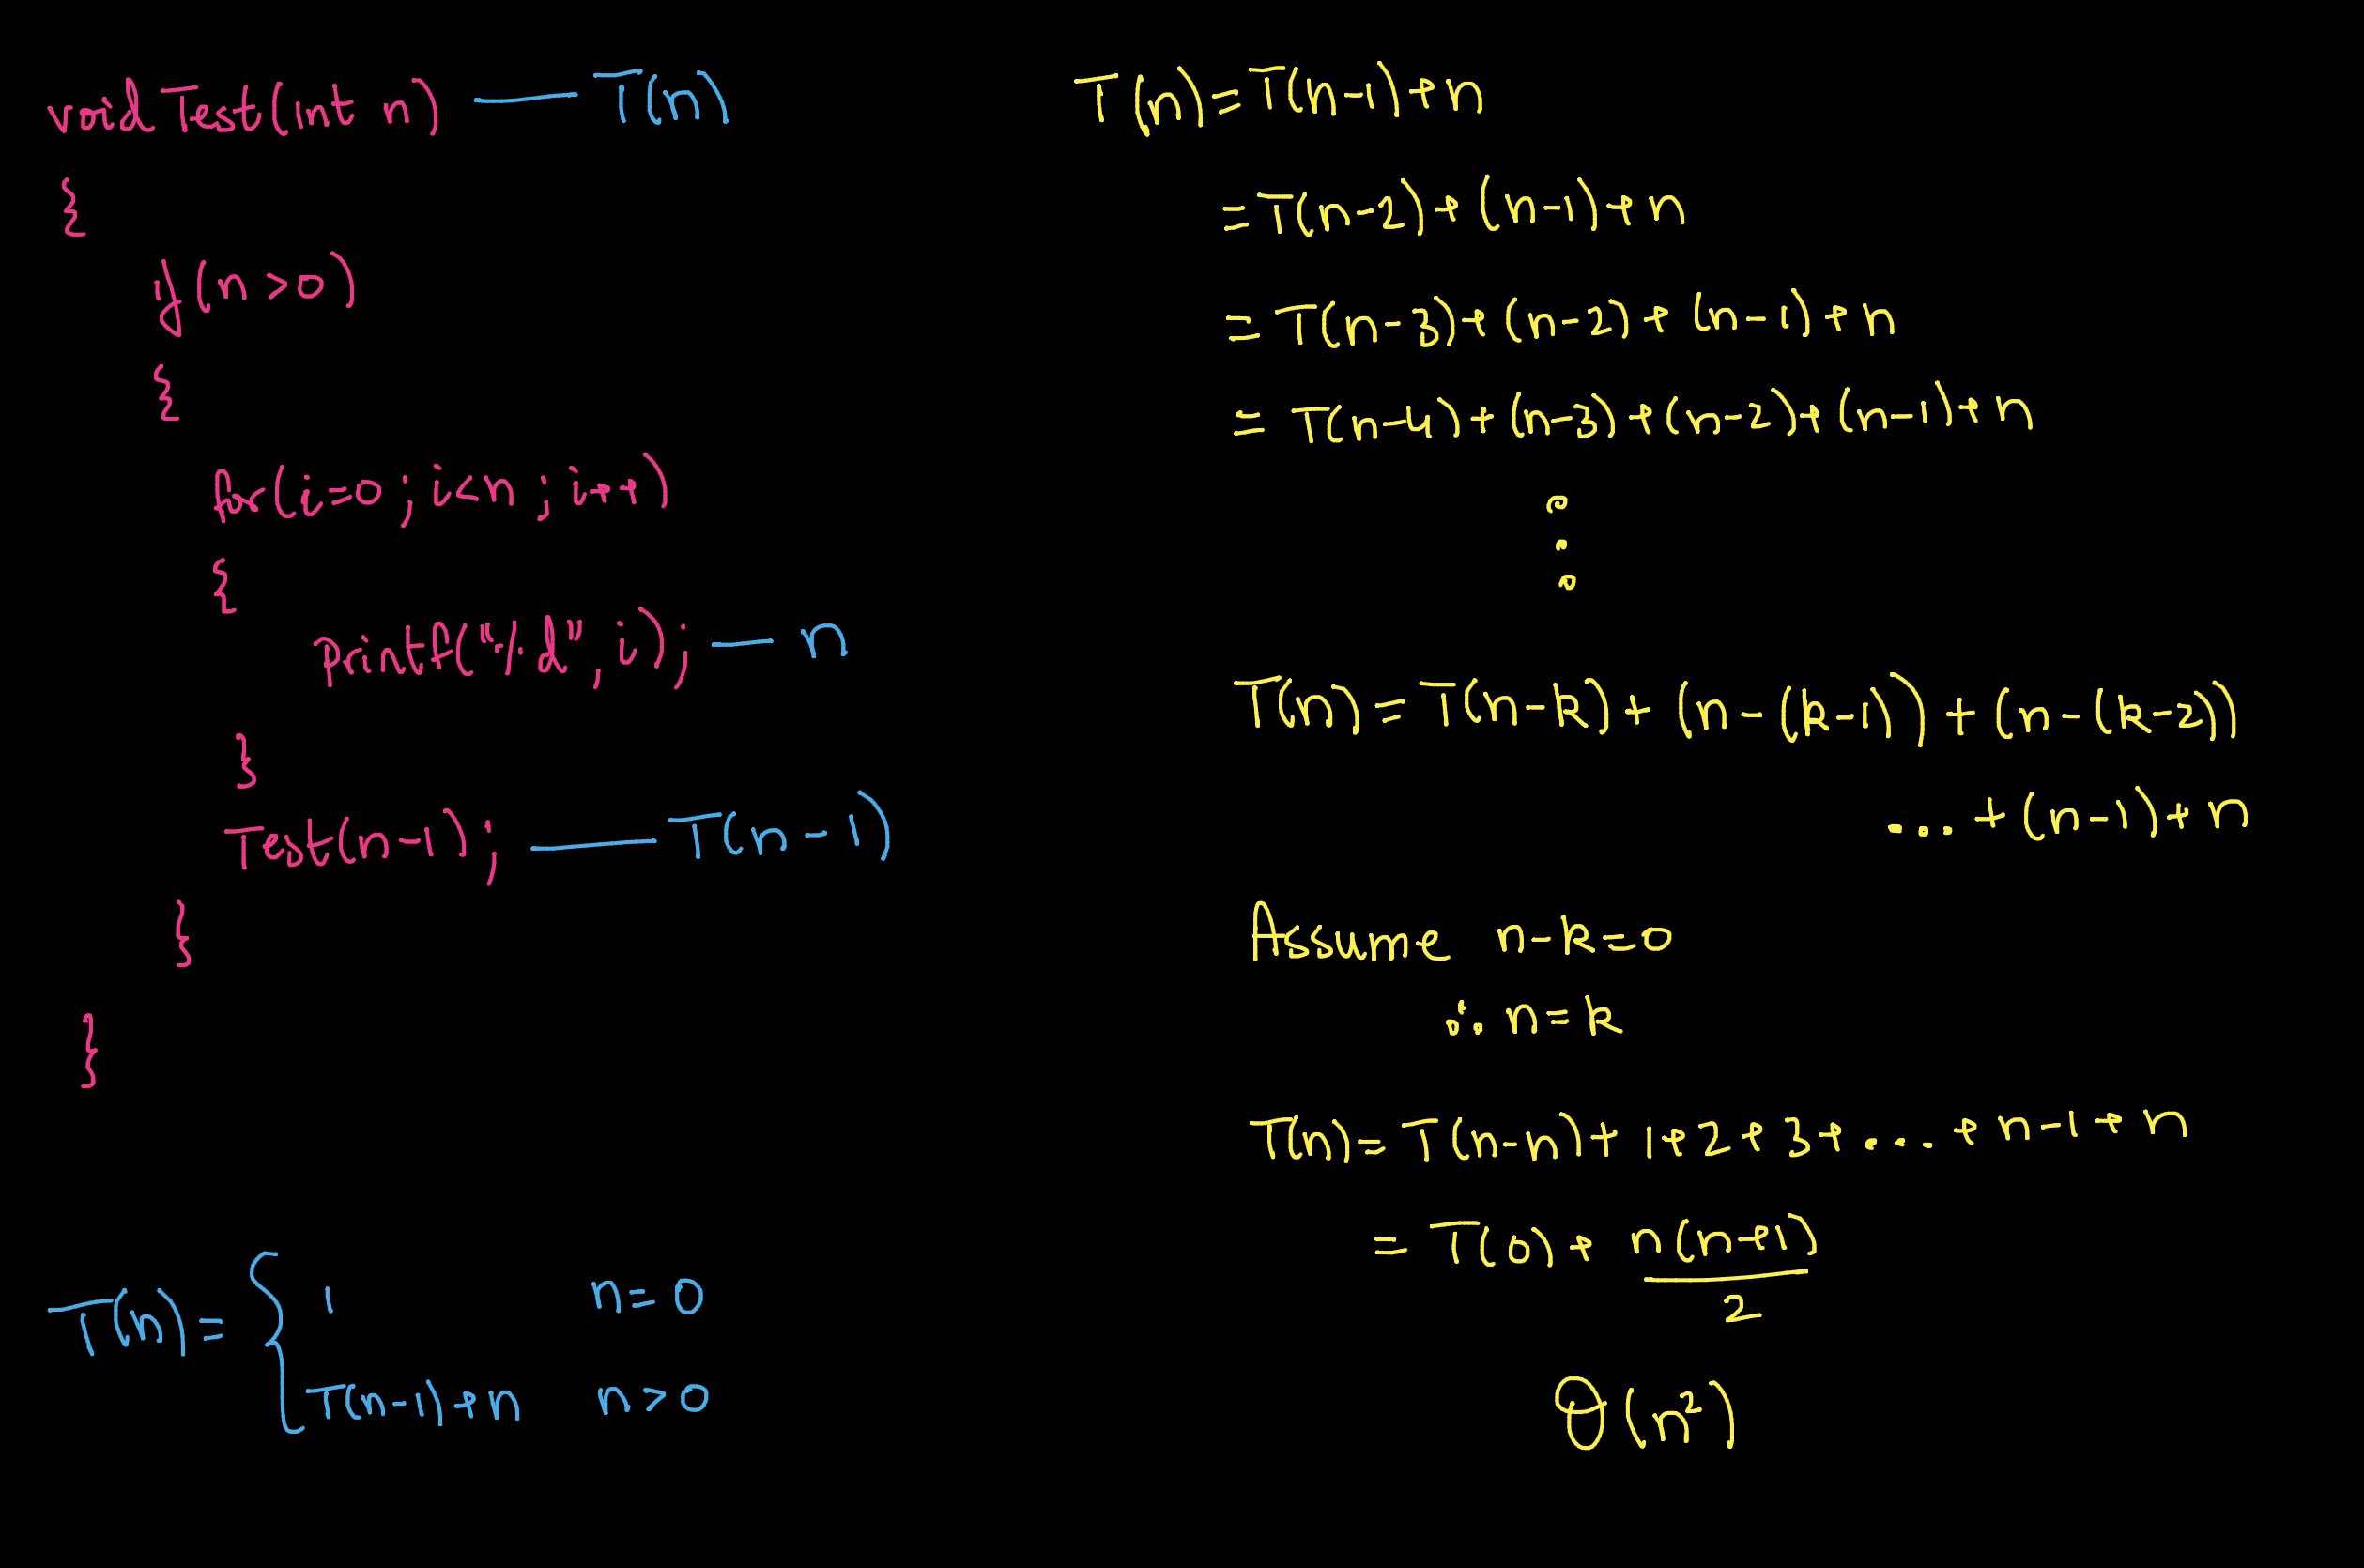 void Test(int n) — T(n)
{
if(n>0)
{
for(i=0; i<n; i++)
{
printf("%d", i); — n
}
Test(n-1); — T(n-1)
}
}
T(n)= { 1 n=0
T(n-1)+n n>0
T(n)=T(n-1)+n
=T(n-2)+(n-1)+n
=T(n-3)+(n-2)+(n-1)+n
=T(n-4)+(n-3)+(n-2)+(n-1)+n
⋮
T(n)=T(n-k)+(n-(k-1))+(n-(k-2))
...+(n-1)+n
Assume n-k=0
∴ n=k
T(n)=T(n-n)+1+2+3+...+n-1+n
=T(0)+n(n+1)
2
θ(n²)